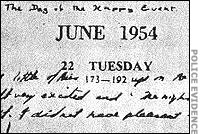 The Day of the Happy Event
JUNE 1954
22 TUESDAY
little 173—192 up on
very excited and
I did not have pleasant
POLICE EVIDENCE